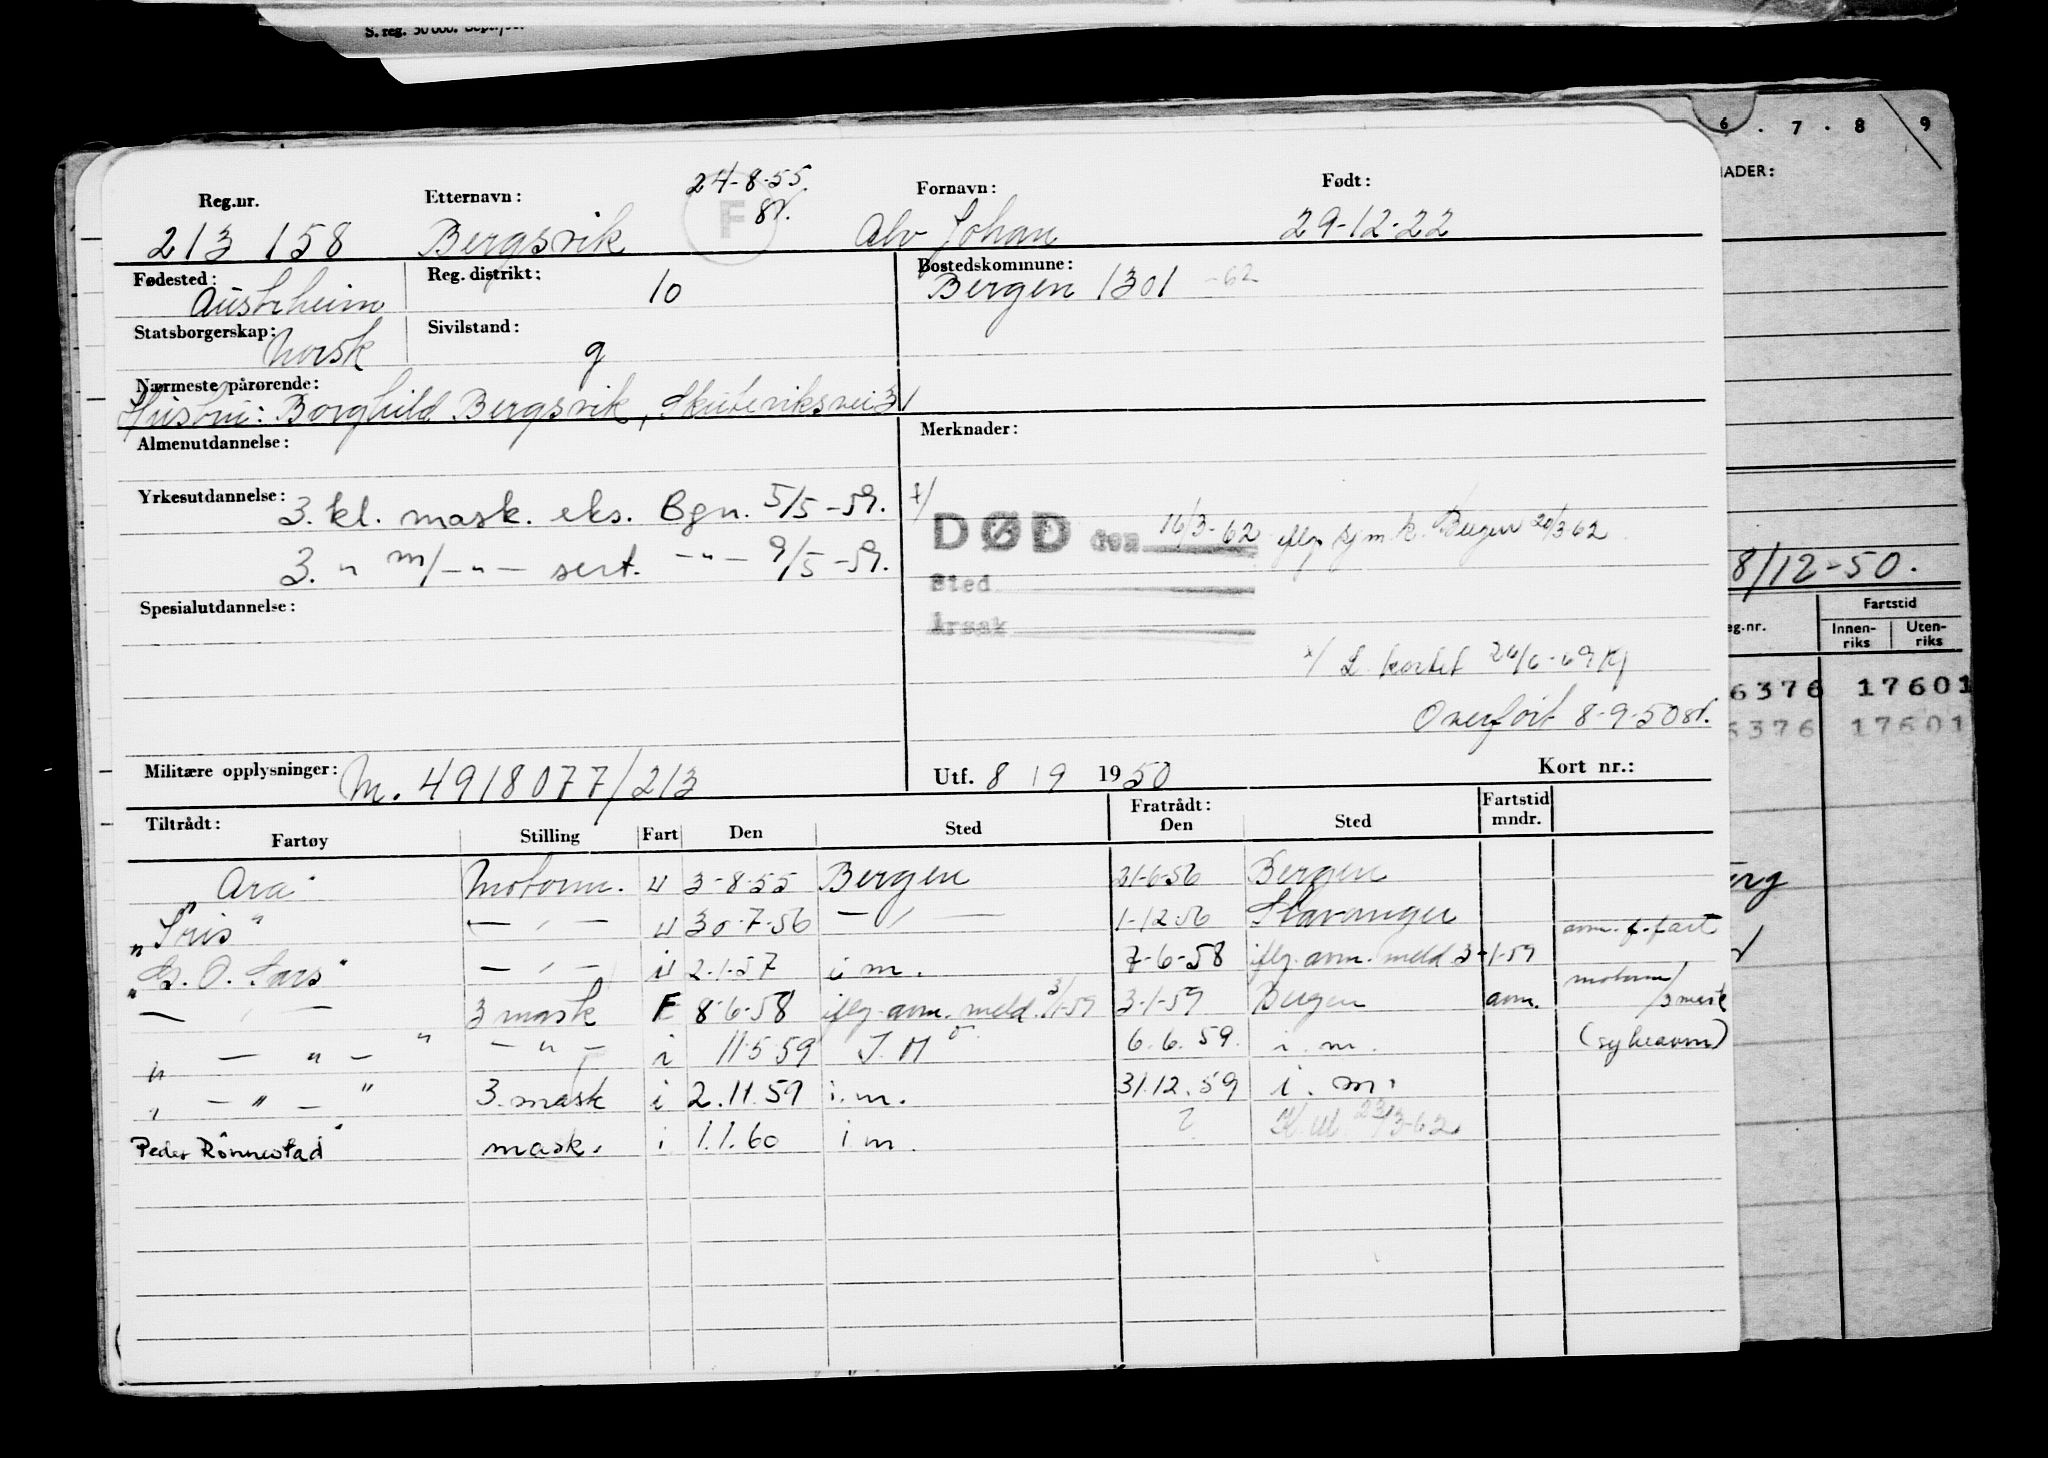 S. reg. 50 000.
6 . 7 . 8 9
NADER:
Reg.nr. Etternavn: 24-8-55. Fornavn: Født:
F
213 158 Bergsvik Alv Johan 29-12-22
Fødested: Reg. distrikt: 10 Bostedskommune:
Austrheim Bergen 1301 -62
Statsborgerskap: Sivilstand:
Norsk g
Nærmeste pårørende:
Hustru: Borghild Bergsvik, Skuteviksvei 31
Almenutdannelse: Merknader:
Yrkesutdannelse: 3. kl. mask. eks. Bgn. 5/5 -59.
DØD den 16/3-62 iflg sjm.k. Bergen 20/3 62
3. " m/-"- sert. -"- 9/5 -59.
Sted
8/12-50.
Spesialutdannelse:
Årsak
Fartstid
eg.nr. Innen-riks Uten-riks
x/ L. kortet 26/6-69 Kj
6376 17601
Overført 8-9-50
6376 17601
Militære opplysninger: M. 4918077/213 Utf. 8 / 9 1950 Kort nr.:
Tiltrådt: Fratrådt: Fartstid
Fartøy Stilling Fart Den Sted Den Sted mndr.
"Ara" Motorm. u 3-8-55 Bergen 21-6-56 Bergen
"Iris" — " — u 30-7-56 — " — 1-12-56 Stavanger avm. f. fart
"G. O. Sars" — " — u 2-1-57 i m. 7-6-58 iflg. avm. meld 3-1-59
— " — 3 mask F 8-6-58 iflg. avm. meld. 3/1-59 3-1-59 Bergen avm. motorm/3 mask
" — " — " — " — i 11.5.59 I. M 6.6.59. i. m. (sykeavm)
" — " — " 3. mask i 2.11.59 i. m. 31.12.59 i. m.
Peder Rönnestad" mask. i 1.1.60 i m. ? 23/3-62